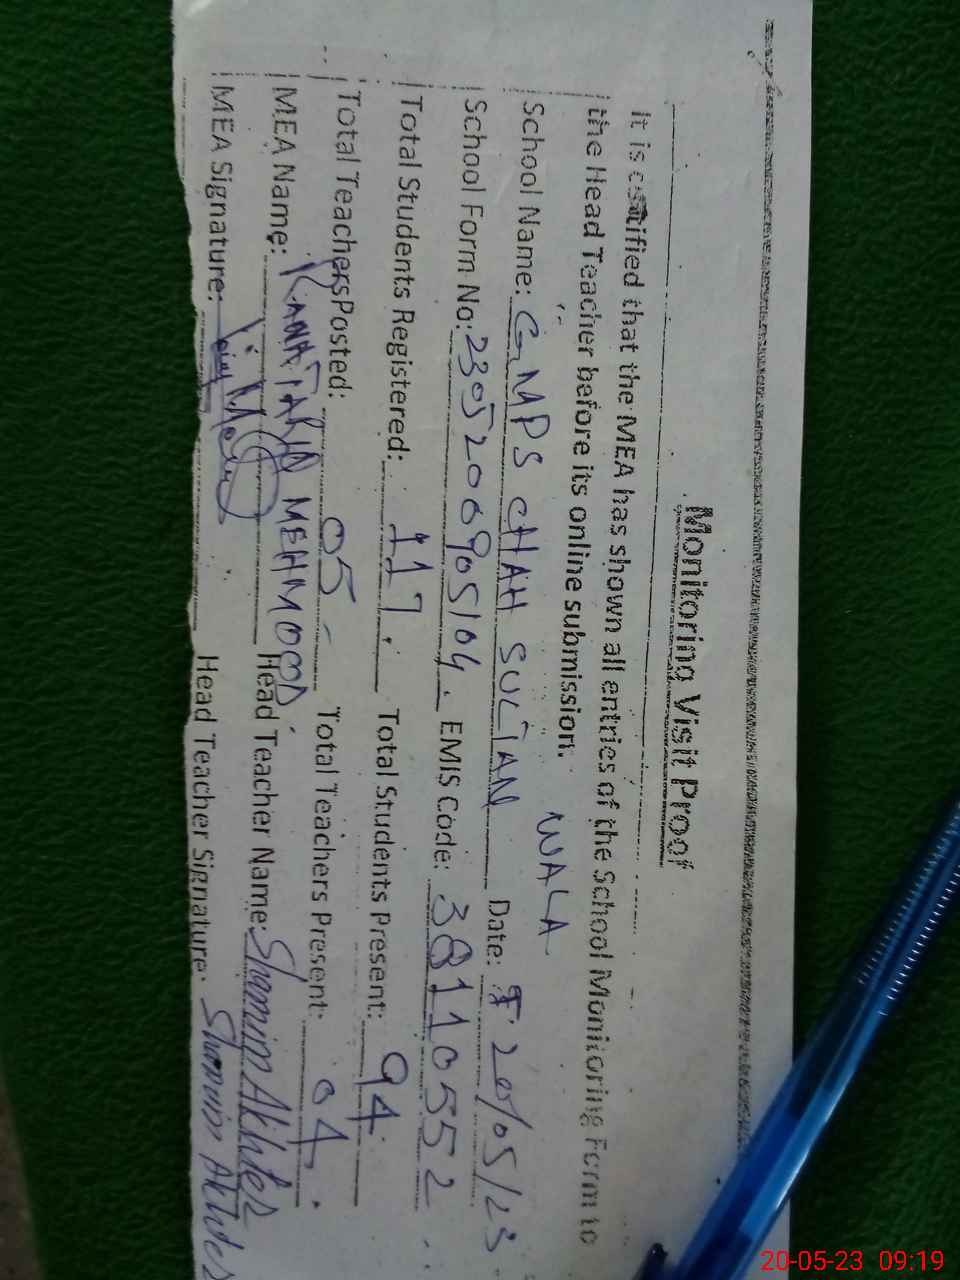 Monitoring Visit Proof
It is certified that the MEA has shown all entries of the School Monitoring Form to
the Head Teacher before its online submission.
WALA
School Name: GMPS CHAH SULTAN Date: 20/05/23
School Form No: 2305206905104. EMIS Code: 38110552
Total Students Registered: 117. Total Students Present: 94.
Total Teachers Posted: 05 Total Teachers Present: 04.
MEA Name: RANA TARIQ MEHMOOD Head Teacher Name: Shamim Akhter
MEA Signature: Head Teacher Signature: Shamim Akhter
20-05-23 09:19